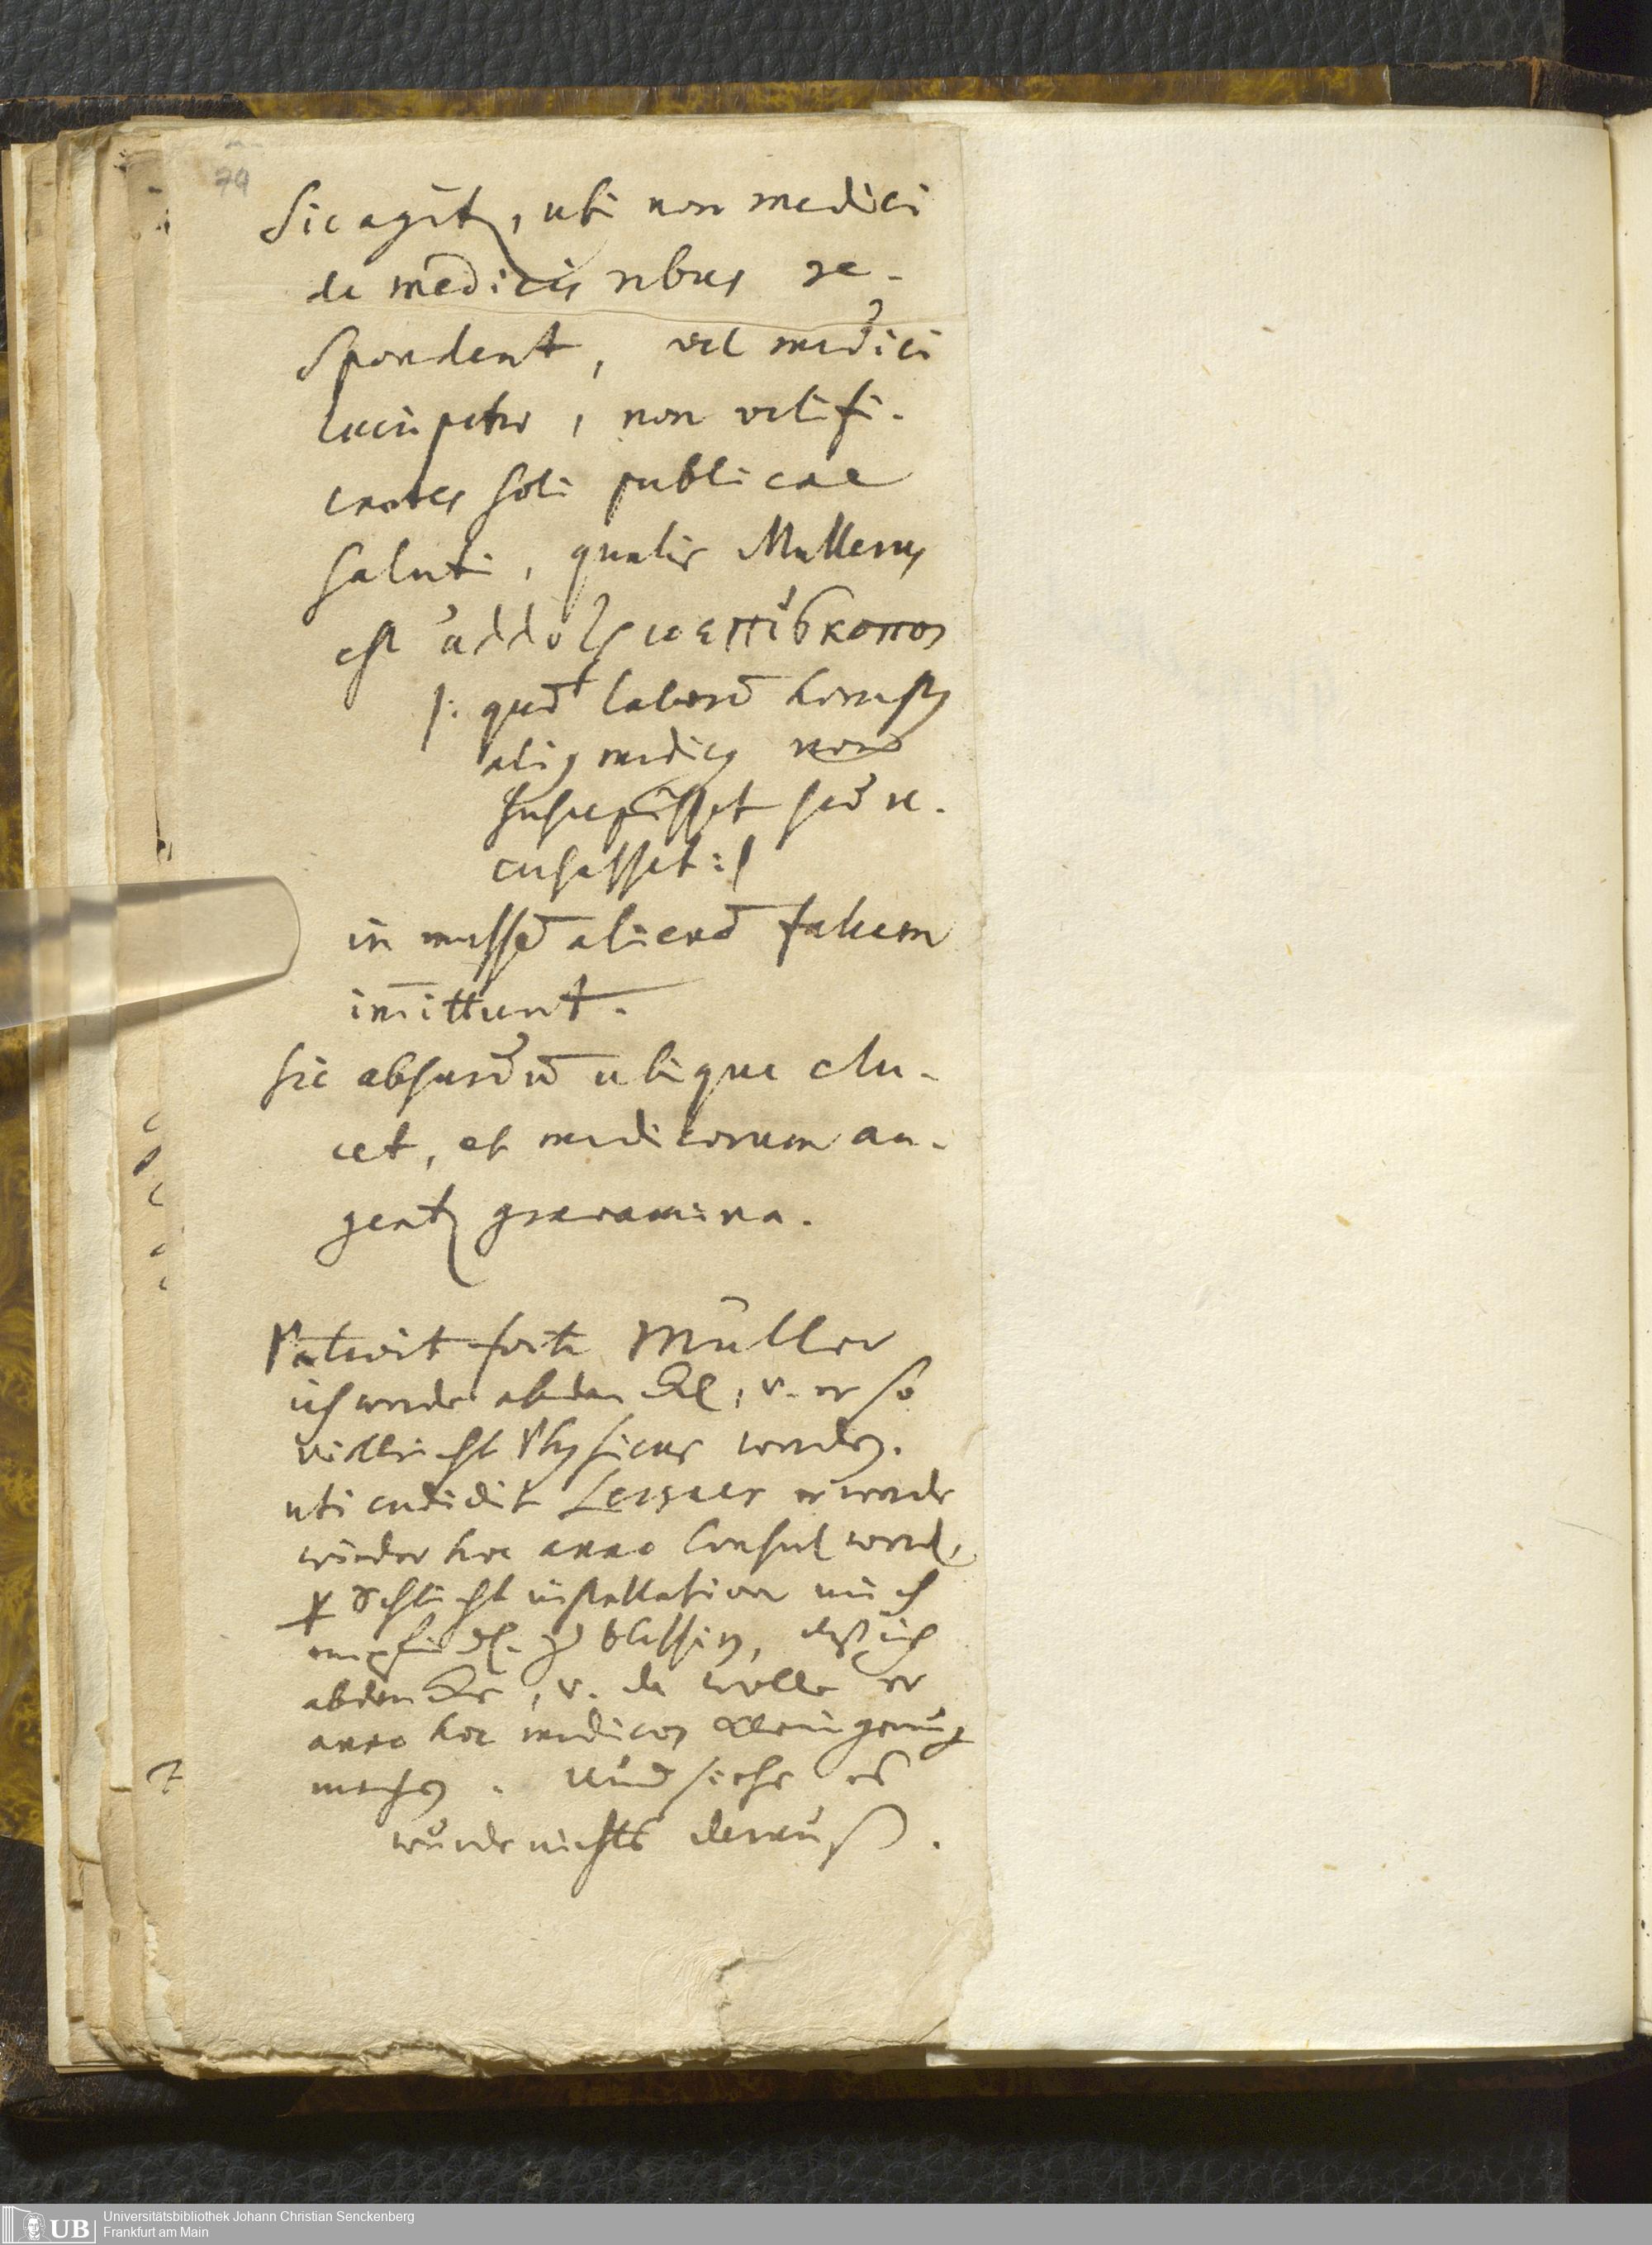 79
Sic agitur, ubi non medici
de medicis rebus re-
spondent, vel medici
lucripetae, non velifi-
cantes soli publicae
saluti, qualis Mullerus
est ἀλλοτριοεπίσκοπος
/: quem laborem honestus
alius medicus non
suscepisset sed re-
cusasset :/
in messem alienam falcem
immittunt.
Sic absurdum ubique elu-
cet, et medicorum au-
gentur gravamina.
Putavit forte Müller
ich werde abdanken, v. er so
vielleicht Physicus werden.
uti credidit Lersner er werde
wieder hoc anno Consul werd,
installation mich
daß ich
abdanke, v. da wolle er
anno hoc medicos klein genug
machen. Und siehe es
wurde nichts derauß.
UB
Universitätsbibliothek Johann Christian Senckenberg
Frankfurt am Main